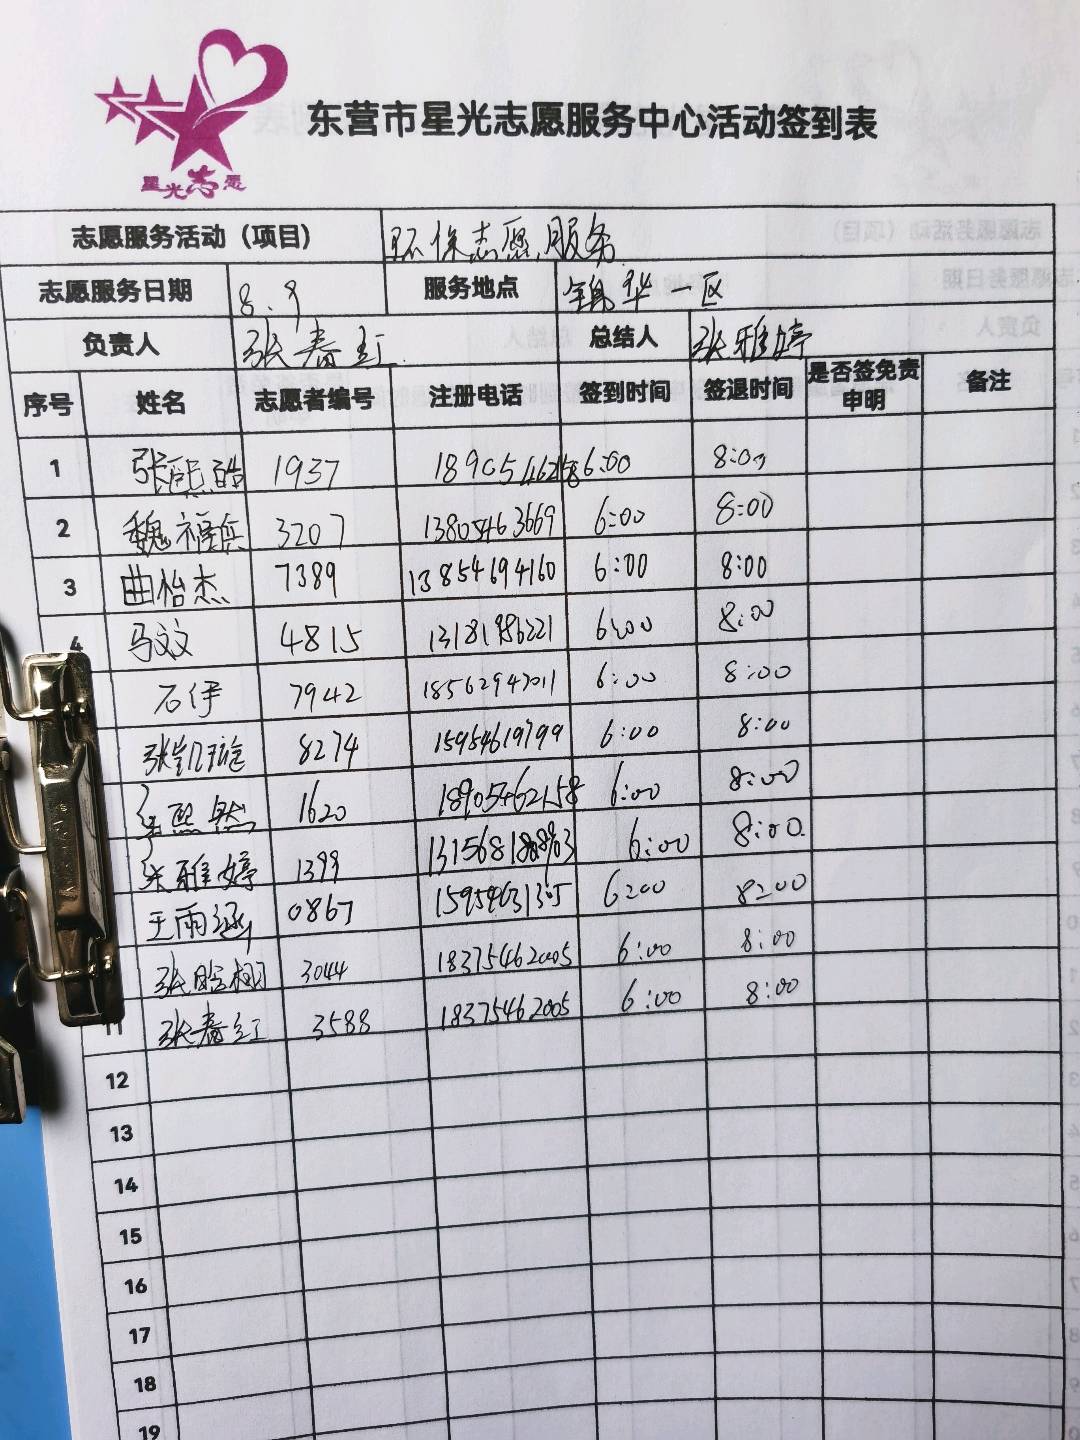 星光志愿
东营市星光志愿服务中心活动签到表
志愿服务活动（项目） 环保志愿服务
志愿服务日期 8.9 服务地点 锦华一区
负责人 张春红 总结人 张雅婷
序号 姓名 志愿者编号 注册电话 签到时间 签退时间 是否签免责申明 备注
1 张熙皓 1937 6:00 8:00
2 魏福兵 3207 13805463669 6:00 8:00
3 曲怡杰 7389 13854694160 6:00 8:00
4 马文文 4815 13181986221 6:00 8:00
石伊 7942 18562947011 6:00 8:00
张凯璇 8274 15954619799 6:00 8:00
熙然 1620 18905462158 6:00 8:00
张雅婷 1399 6:00 8:00
王雨涵 0867 15954631365 6:00 8:00
张晗栩 3044 18375462005 6:00 8:00
11 张春红 3588 18375462005 6:00 8:00
12
13
14
15
16
17
18
19